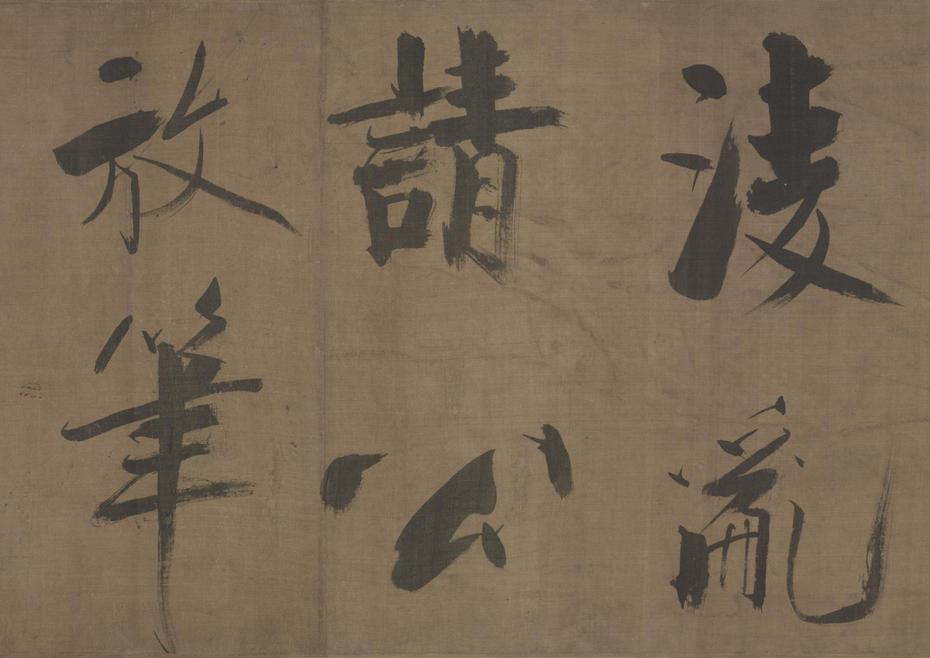 淩亂
請公
放筆